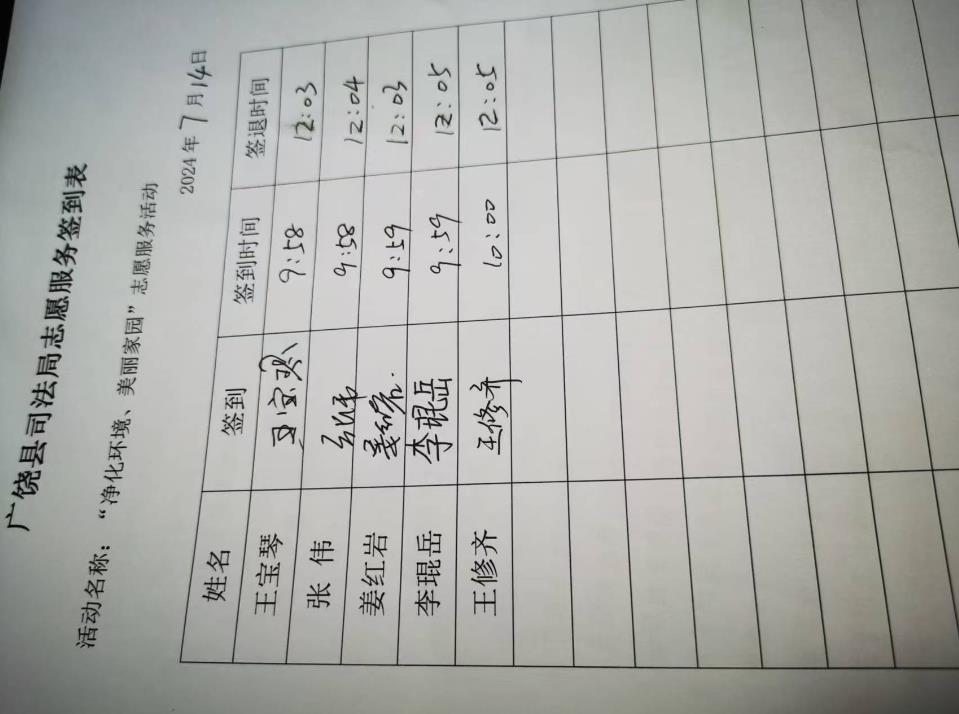 广饶县司法局志愿服务签到表
活动名称：“净化环境、美丽家园”志愿服务活动
2024年7月14日
姓名 签到 签到时间 签退时间
王宝琴 王宝琴 9:58 12:03
张伟 张伟 9:58 12:04
姜红岩 姜红岩 9:59 12:03
李琨岳 李琨岳 9:59 12:05
王修齐 王修齐 10:00 12:05